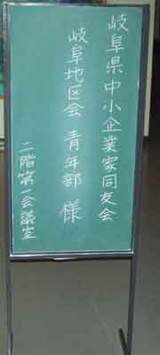 岐阜県中小企業家同友会
岐阜地区会 青年部 様
二階第一会議室